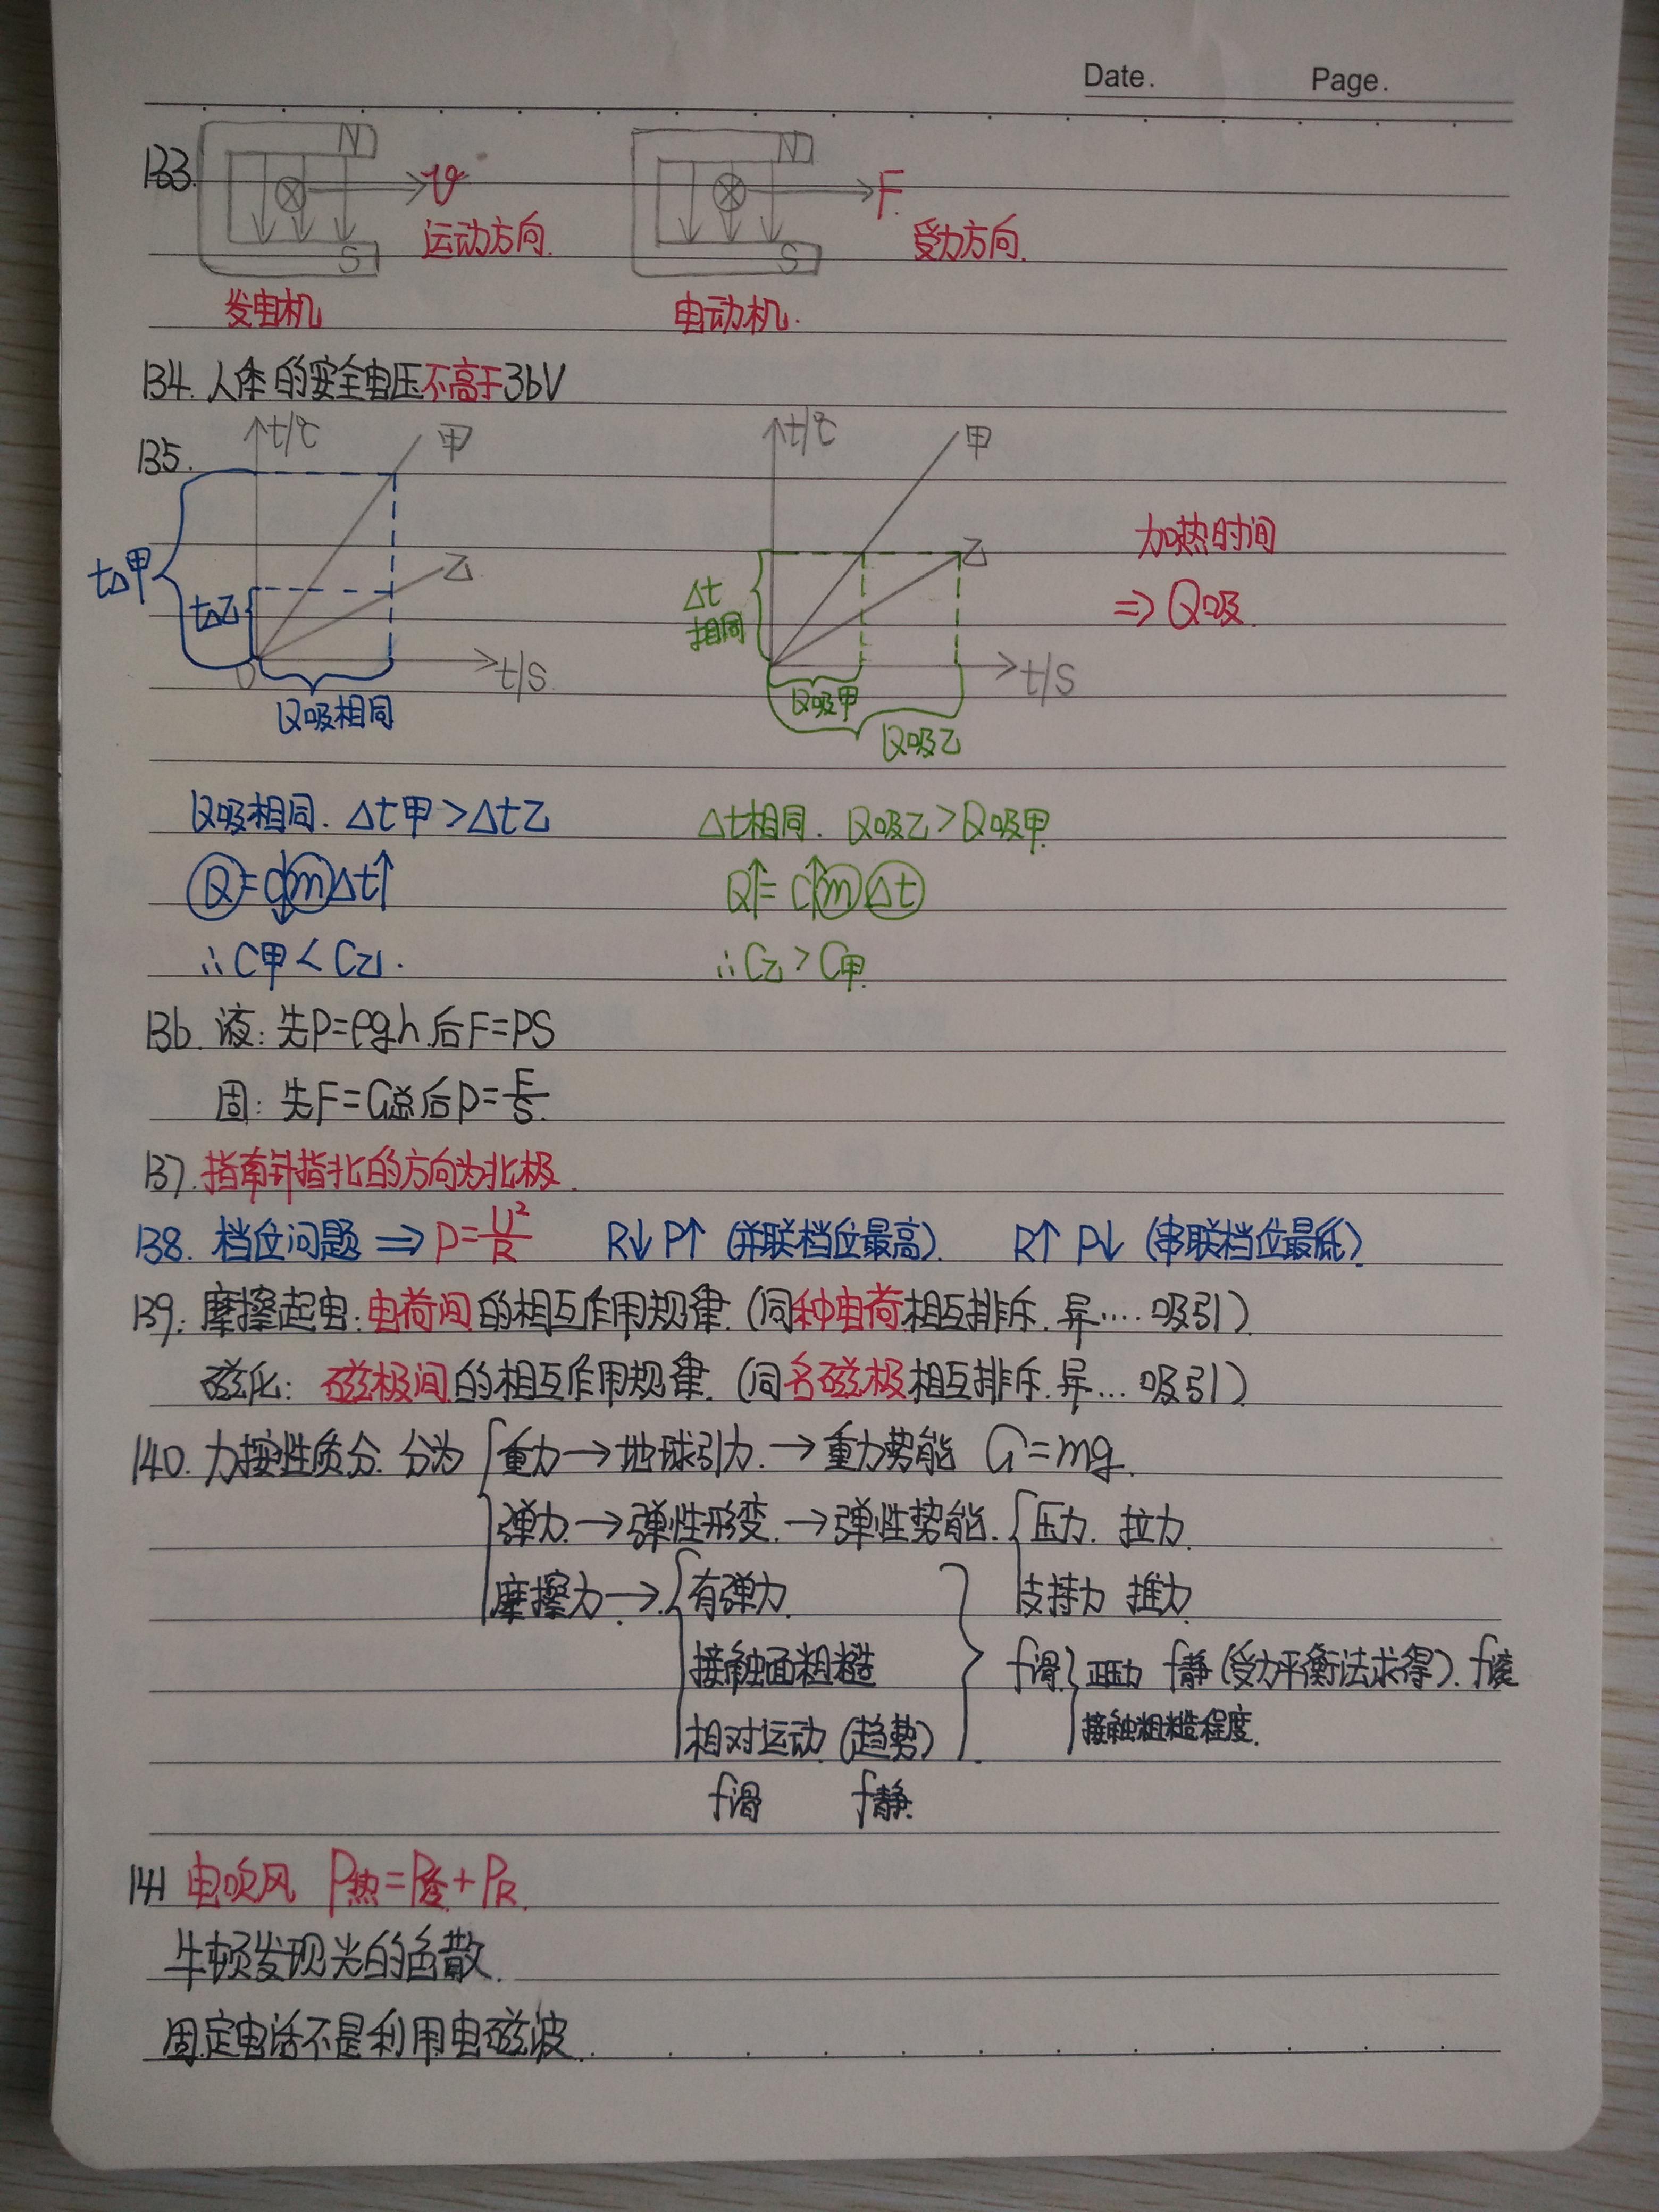 Date. Page.
133. N N
v F
运动方向. 受力方向.
S S
发电机 电动机.
134. 人体的安全电压不高于36V
135. t/℃ 甲 t/℃ 甲
乙 乙 加热时间
t△甲 t△乙 Δt相同 ⇒Q吸.
0 t/S t/S
Q吸相同 Q吸甲 Q吸乙
Q吸相同. Δt甲>Δt乙 Δt相同. Q吸乙>Q吸甲.
Q=c↓mΔt↑ Q↑=c↑mΔt
∴C甲<C乙. ∴C乙>C甲.
136. 液: 先P=ρgh.后F=PS
固: 先F=G总后P=F/S.
137. 指南针指北的方向为北极.
138. 档位问题⇒P=U²/R R↓P↑(并联档位最高). R↑P↓(串联档位最低)
139. 摩擦起电:电荷间的相互作用规律.(同种电荷相互排斥.异....吸引)
磁化: 磁极间的相互作用规律.(同名磁极相互排斥.异...吸引)
140. 力按性质分.分为 重力→地球引力.→重力势能 G=mg.
弹力→弹性形变.→弹性势能. 压力. 拉力.
摩擦力→ 有弹力. 支持力 推力.
接触面粗糙 f滑 正压力 f静(受力平衡法求得). f滚
相对运动(趋势) 接触粗糙程度.
f滑 f静.
141 电吹风 P热=P+PR.
牛顿发现光的色散.
固定电话不是利用电磁波.